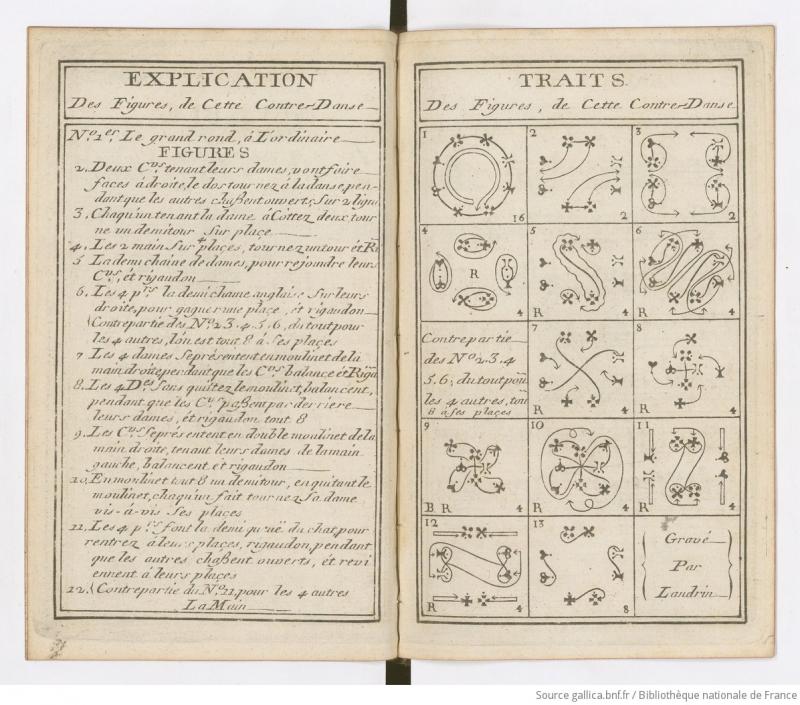 EXPLICATION
Des Figures, de Cette Contre-Danse
No. 1er. Le grand rond, à L'ordinaire
FIGURES
2. Deux Crs. tenant leurs dames, vont faire
faces à droite, le dos tournez à la danse, pen-
dant que les autres chaßent ouverts, sur 2 lignes
3. Chaqu'un tenant la dame à Côttez deux, tour
ne un demi tour sur place
4. Les 2 main sur 4 places, tournez un tour et Ri
5 La demi chaine de dames, pour rejoindre leurs
Crs, et rigaudon
6. Les 4 prs. la demi chaine anglaise sur leurs
droite, pour gagner une place, et rigaudon
Contrepartie des No. 2. 3. 4. 5. 6, du tout pour
les 4 autres, l'on est tout 8 à ses places
7 Les 4 dames se présentent en moulinet de la
main droite pendant que les Crs balance et Rig
8. Les 4 Des. sans quittez le moulinet, balancent,
pendant que les Crs paßent par derriere
leurs dames, et rigaudon tout 8
9. Les Crs se présentent en double moulinet de la
main droite, tenant leurs dames de la main
gauche, balancent et rigaudon
10. En moulinet tout 8 un demi tour, en quitant le
moulinet, chaqu'un fait tournez sa dame
vis-à-vis ses places
11. Les 4 prs font la demi queuë du chat, pour
rentrez à leurs places, rigaudon, pendant
que les autres chaßent ouverts, et revi
ennent à leurs places
12. Contrepartie du No. 11, pour les 4 autres
La Main
TRAITS.
Des Figures, de Cette Contre-Danse
1
16
2
2
3
2
4
R
4
5
R
4
6
R
4
Contrepartie
des No. 2. 3. 4
5. 6; du tout pour
les 4 autres, tou
8 à ses places
7
R
4
8
R
4
9
B R
4
10
R
4
11
R
4
12
R
4
13
8
Gravé
Par
Landrin
Source gallica.bnf.fr / Bibliothèque nationale de France